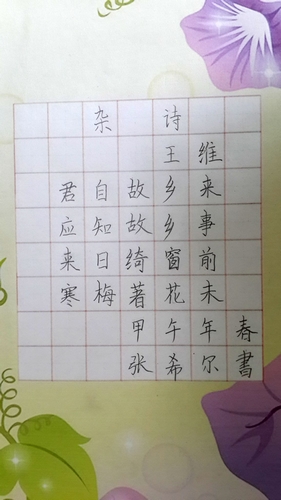 杂诗
王维
君自故乡来
应知故乡事
来日绮窗前
寒梅著花未
甲午年春
张希尔書